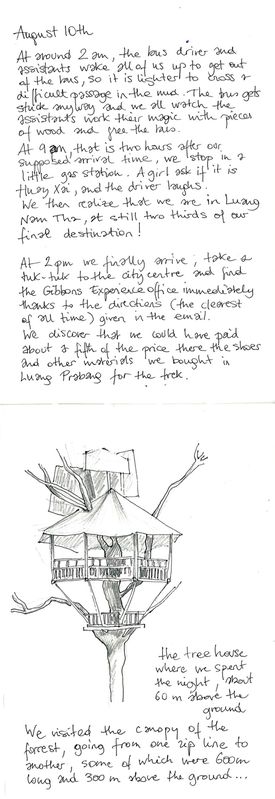 August 10th
At around 2 am, the bus driver and
assistants wake all of us up to get out
of the bus, so it is lighter to cross a
difficult passage in the mud. The bus gets
stuck anyway and we all watch the
assistants work their magic with pieces
of wood and free the bus.
At 9 am, that is two hours after our
supposed arrival time, we stop in a
little gas station. A girl ask if it is
Huay Xai, and the driver laughs.
We then realize that we are in Luang
Nam Tha, at still two thirds of our
final destination!
At 2 pm we finally arrive, take a
tuk-tuk to the city centre and find
the Gibbons Experience office immediately
thanks to the directions (the clearest
of all time) given in the email.
We discover that we could have paid
about a fifth of the price there the shoes
and other materials we bought in
Luang Prabang for the trek.
the tree house
where we spent
the night, about
60 m above the
ground
We visited the canopy of the
forrest, going from one zip line to
another, some of which were 600m
long and 300 m above the ground...